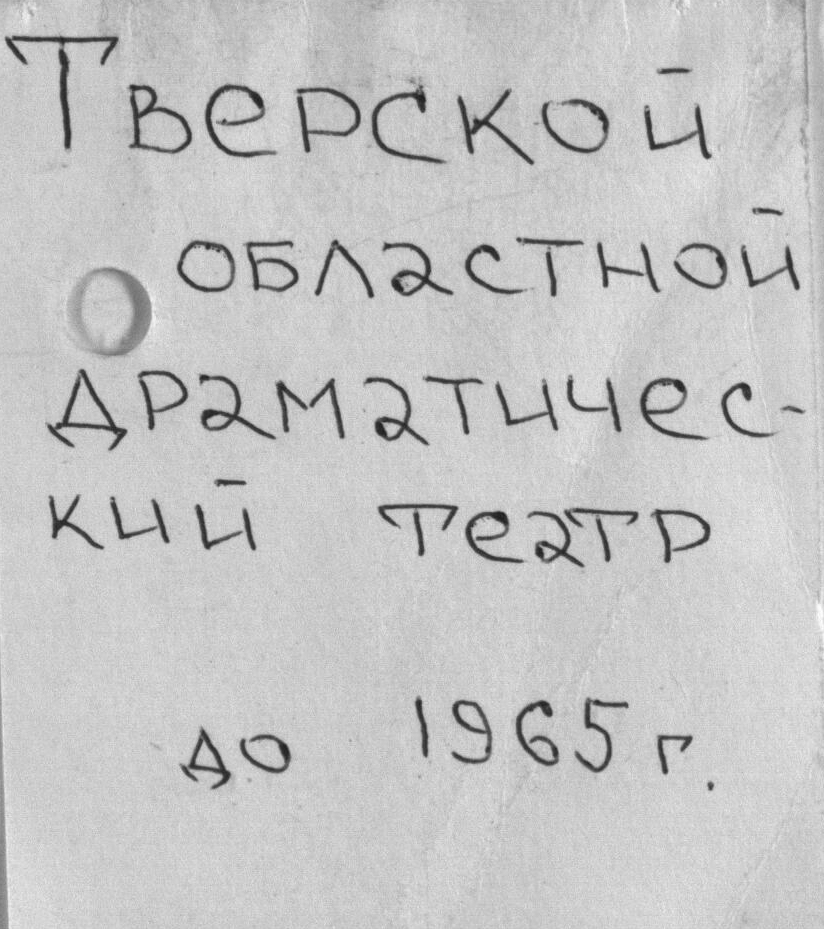 Тверской
областной
драматичес-
кий театр
до 1965 г.